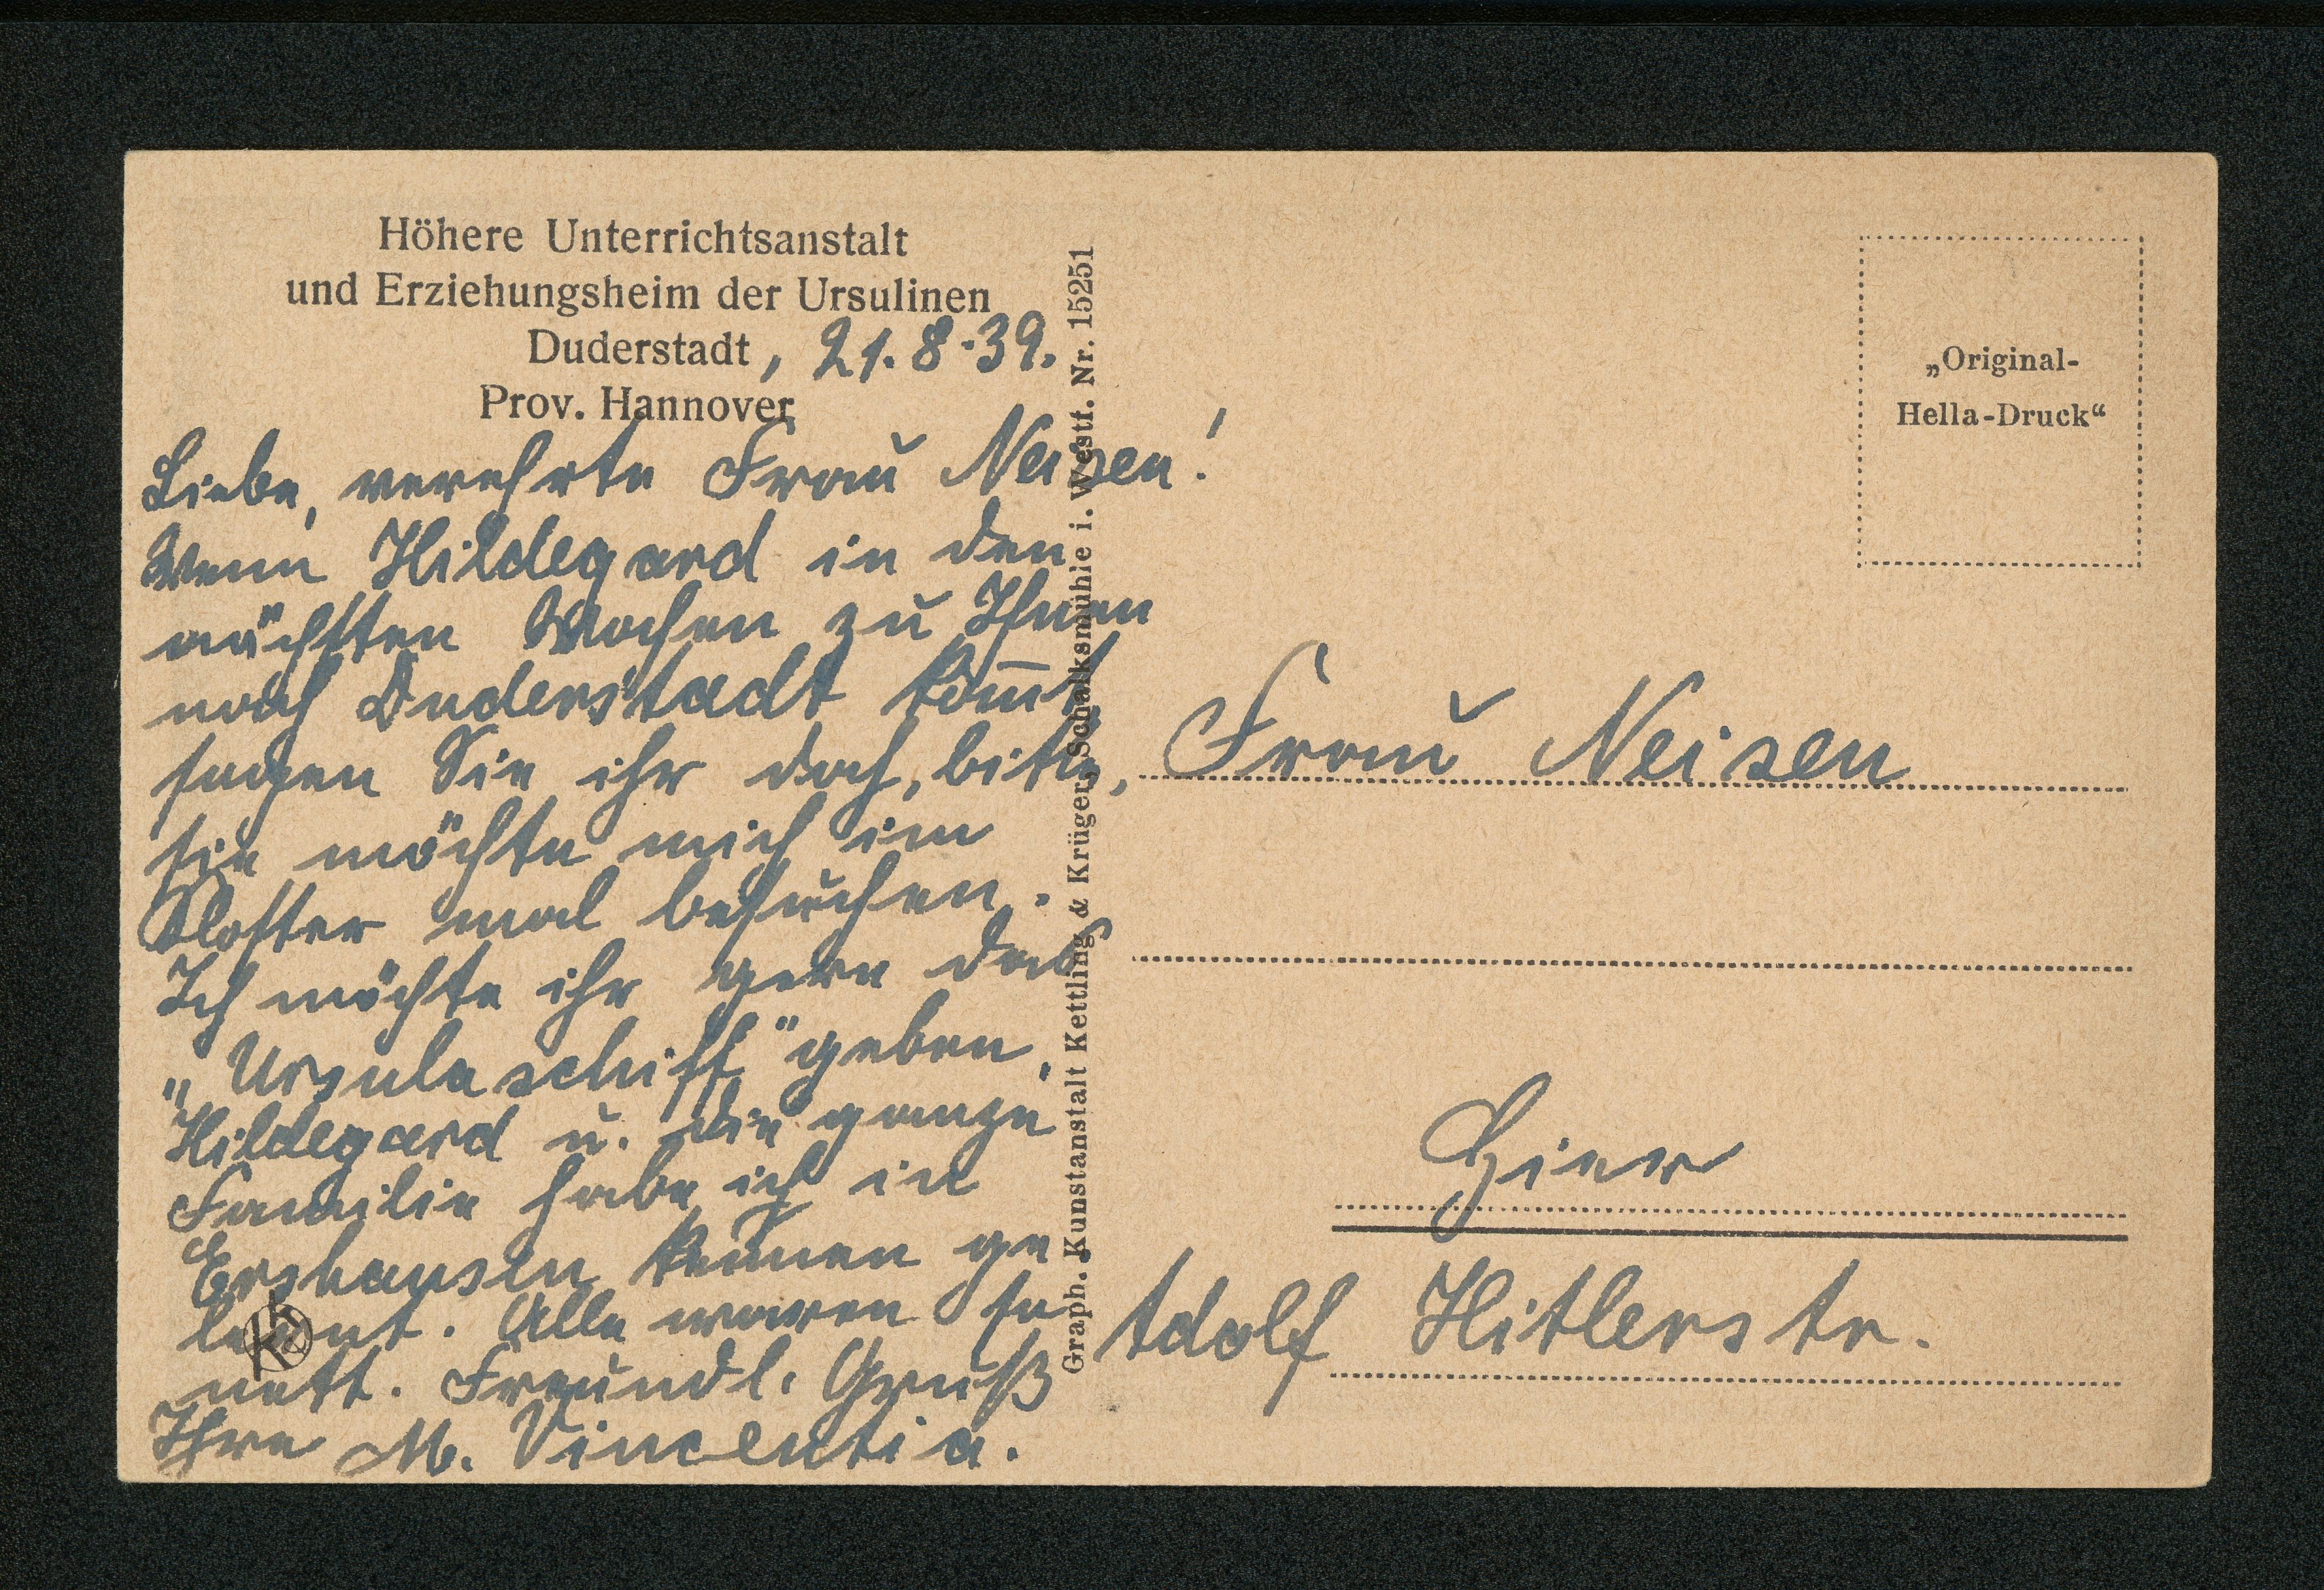 Höhere Unterrichtsanstalt
und Erziehungsheim der Ursulinen
Duderstadt, 21.8.39.
Prov. Hannover
Liebe, verehrte Frau Neisen!
Wenn Hildegard in den
nächsten Wochen zu Ihnen
nach Duderstadt kom̅t,
sagen Sie ihr doch, bitte,
sie möchte mich im
Kloster mal besuchen.
Ich möchte ihr gern das
„Ursulaschiff" geben.
Hildegard u. die ganze
Familie habe ich in
Ershausen ken̅en ge
lernt. Alle waren so
nett. Freundl. Gruß
Ihre M. Vincentia.
Graph. Kunstanstalt Kettling & Krüger, Schalksmühle i. Westf. Nr. 15251
„Original-
Hella-Druck“
Frau Neisen
Hier
Adolf Hitlerstr.